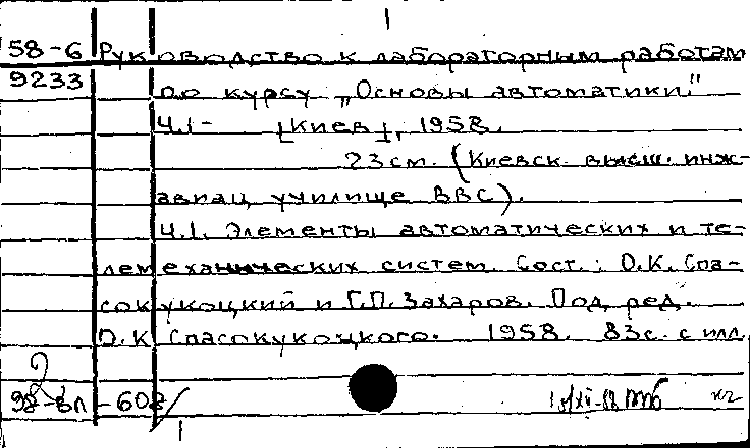 1
58-6 Руководство к лабораторным работам
9233 по курсу „Основы автоматики."
Ч.1- [Киев], 1958.
23 см. (Киевск. высш. инж-
авиац. училище ВВС).
Ч.1. Элементы автоматических и те-
лемеханических систем. Сост.: О.К. Спа-
сокукоцкий и Г.П. Захаров. Под ред.
О.К Спасокукоцкого. 1958. 83с. с илл.
2
98-ВЛ-608/
1